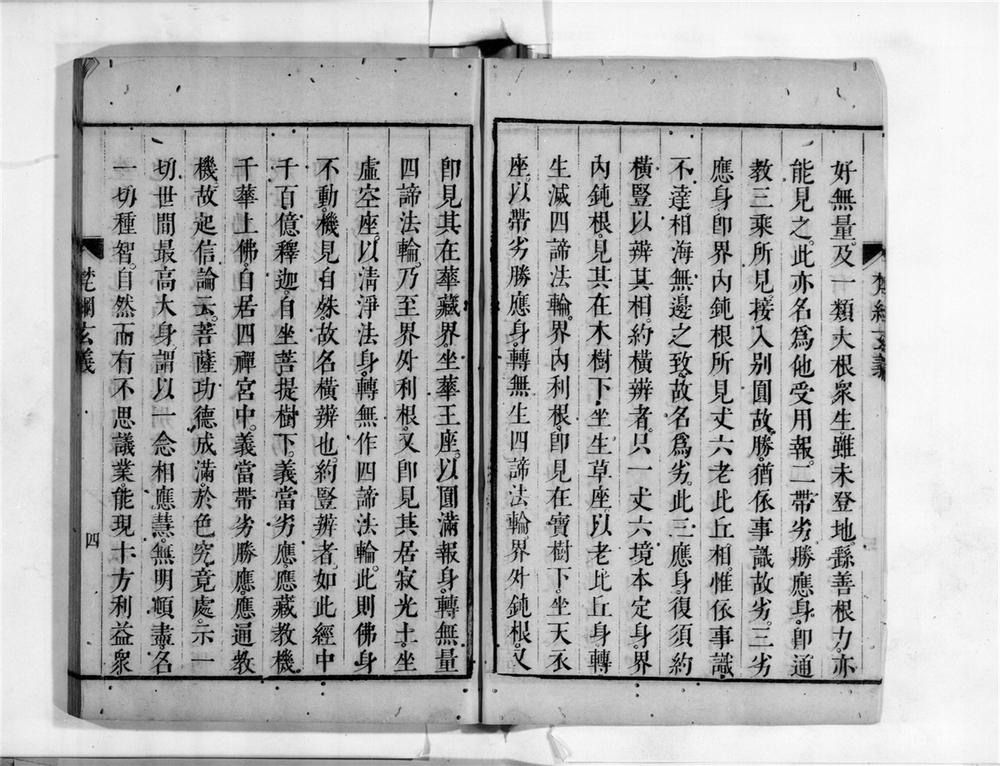 好無量。及一類大根衆生雖未登地繇善根力。亦
能見之。此亦名爲他受用報。二帶劣勝應身。卽通
教三乘所見。接入別圓故勝。猶依事識故劣。三劣
應身卽界內鈍根所見丈六老比丘相。惟依事識
不達相海無邊之致。故名爲劣。此三應身。復須約
橫豎以辨其相。約橫辨者。只一丈六境本定身。界
內鈍根。見其在木樹下。坐生草座。以老比丘身。轉
生滅四諦法輪。界內利根。卽見在寶樹下。坐天衣
座。以帶劣勝應身。轉無生四諦法輪。界外鈍根。又
梵網玄義
卽見其在華藏界坐華王座。以圓滿報身。轉無量
四諦法輪。乃至界外利根。又卽見其居寂光土。坐
虛空座。以清淨法身。轉無作四諦法輪。此則佛身
不動。機見自殊。故名橫辨也約豎辨者。如此經中
千百億釋迦。自坐菩提樹下。義當劣應應藏教機
千華上佛。自居四禪宮中。義當帶劣勝應。應通教
機故起信論云。菩薩功德成滿。於色究竟處。示一
切世間最高大身。謂以一念相應慧。無明頓盡。名
一切種智。自然而有不思議業。能現十方利益衆
梵網玄義
四